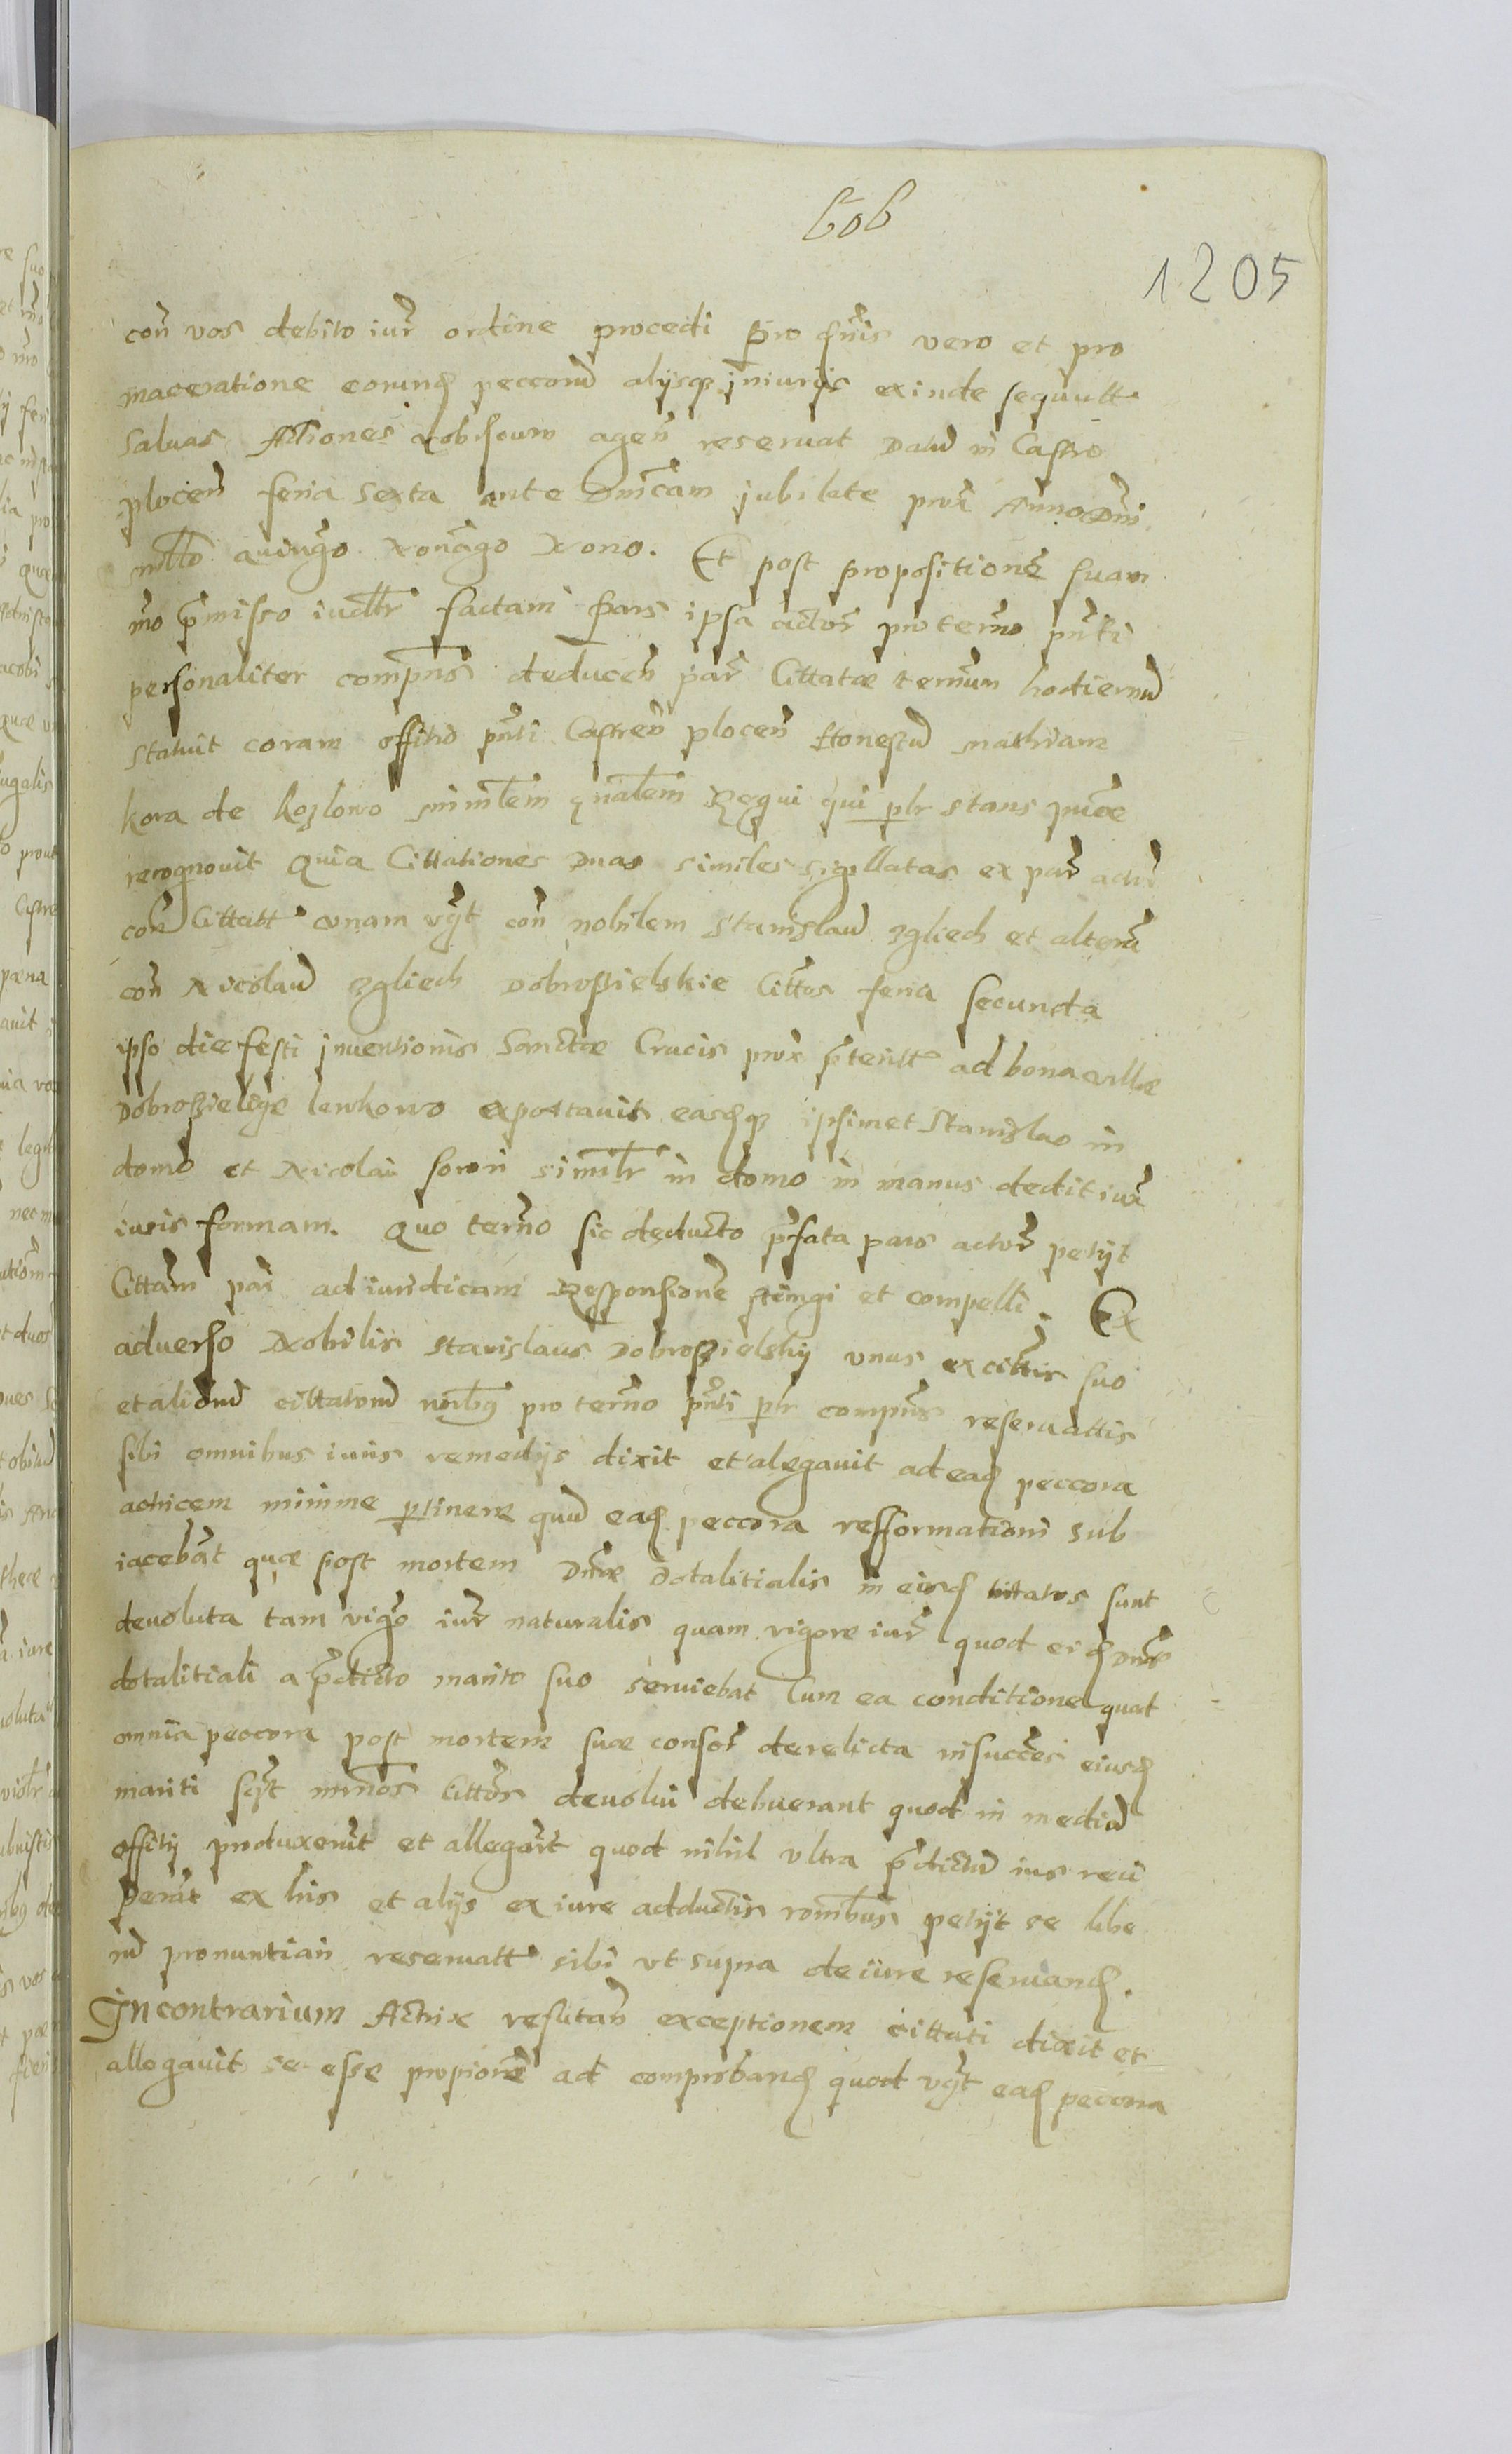 606
1205
con̄ vos debito iur̄ ordine procedi Pro vero et pro
maceratione eorund peccorū alijsqȝ iniurijs exinde sequutt
Saluas Actiones vobiscum agen̄ reseruat Datū in Castro
plocen̄ feria sexta ante Dnīcam jubilate prox̄ Anno Dnī
millo quingō Nonāgo Nono. Et post propositionē suam
mō p̄misso iudltr factam Pars ipsa actor̄ pro termō pn̄ti
personaliter compn̄s deducen̄ par̄ Cittatæ termūm hodiernū
statuit coram offitio pn̄ti Castren̄ plocen̄ Honestū mathiam
kora de kozlowo minrlem gnalem Regni qui plr stans
recognouit Quia Cittationes Duas similes sigillatas ex par̄ actr̄
con̄ Cittatt unam vȝt con̄ nobilem Stanislaū zgliech et alterā
con̄ Nicolaū zgliech Dobrosielskie Cittos feria secunda
ipso die festi jnuentionis Sanctæ Crucis prox p̄teritt ad bona villæ
Dobrosielicze lenkowo exportauit easdqȝ ipsimet Stanislao in
domo et Nicolai simlr in domo in manus dedit iux̄
iuris formam. Quo termō sic deducto p̄fata pars actor̄ petijt
Cittam par̄ ad iuridicam Responsionē stringi et compelli. Ex
aduerso Nobilis Stanislaus Dobrosielskij vnus ex cittis suo
et aliorū cittatorū noībꝯ pro termō pn̄ti plr compn̄s reseruattis
sibi omnibus iuris remedijs dixit et alegauit ad ead peccora
actricem minime ptinere quū ead peccora refformationi sub
iacebāt quæ post mortem Dnæ Dotalitialis in eisd cittatos sunt
deuoluta tam vigō iur̄ naturalis quam vigore iur̄ quod eid Dnæ
dotalitiali a p̄dicto marito suo seruiebat Cum ea conditione quod
omnia peccora post mortem suæ consor̄ derelicta in succēs eiusd
mariti minōs Cittos deuolui debuerant quod in mediū
offitij produxerūt et allegarūt quod nihil vltra p̄dictū ius recū
perāt ex his et alijs ex iure adductis ronībus petijt se libe
rū pronuntiari reseruatt sibi vt supra de iure reseruand.
In contrarium Actrix refutan̄ exceptionem cittati dixit et
allegauit se esse propiorē ad comproband quod vȝt ead peccora